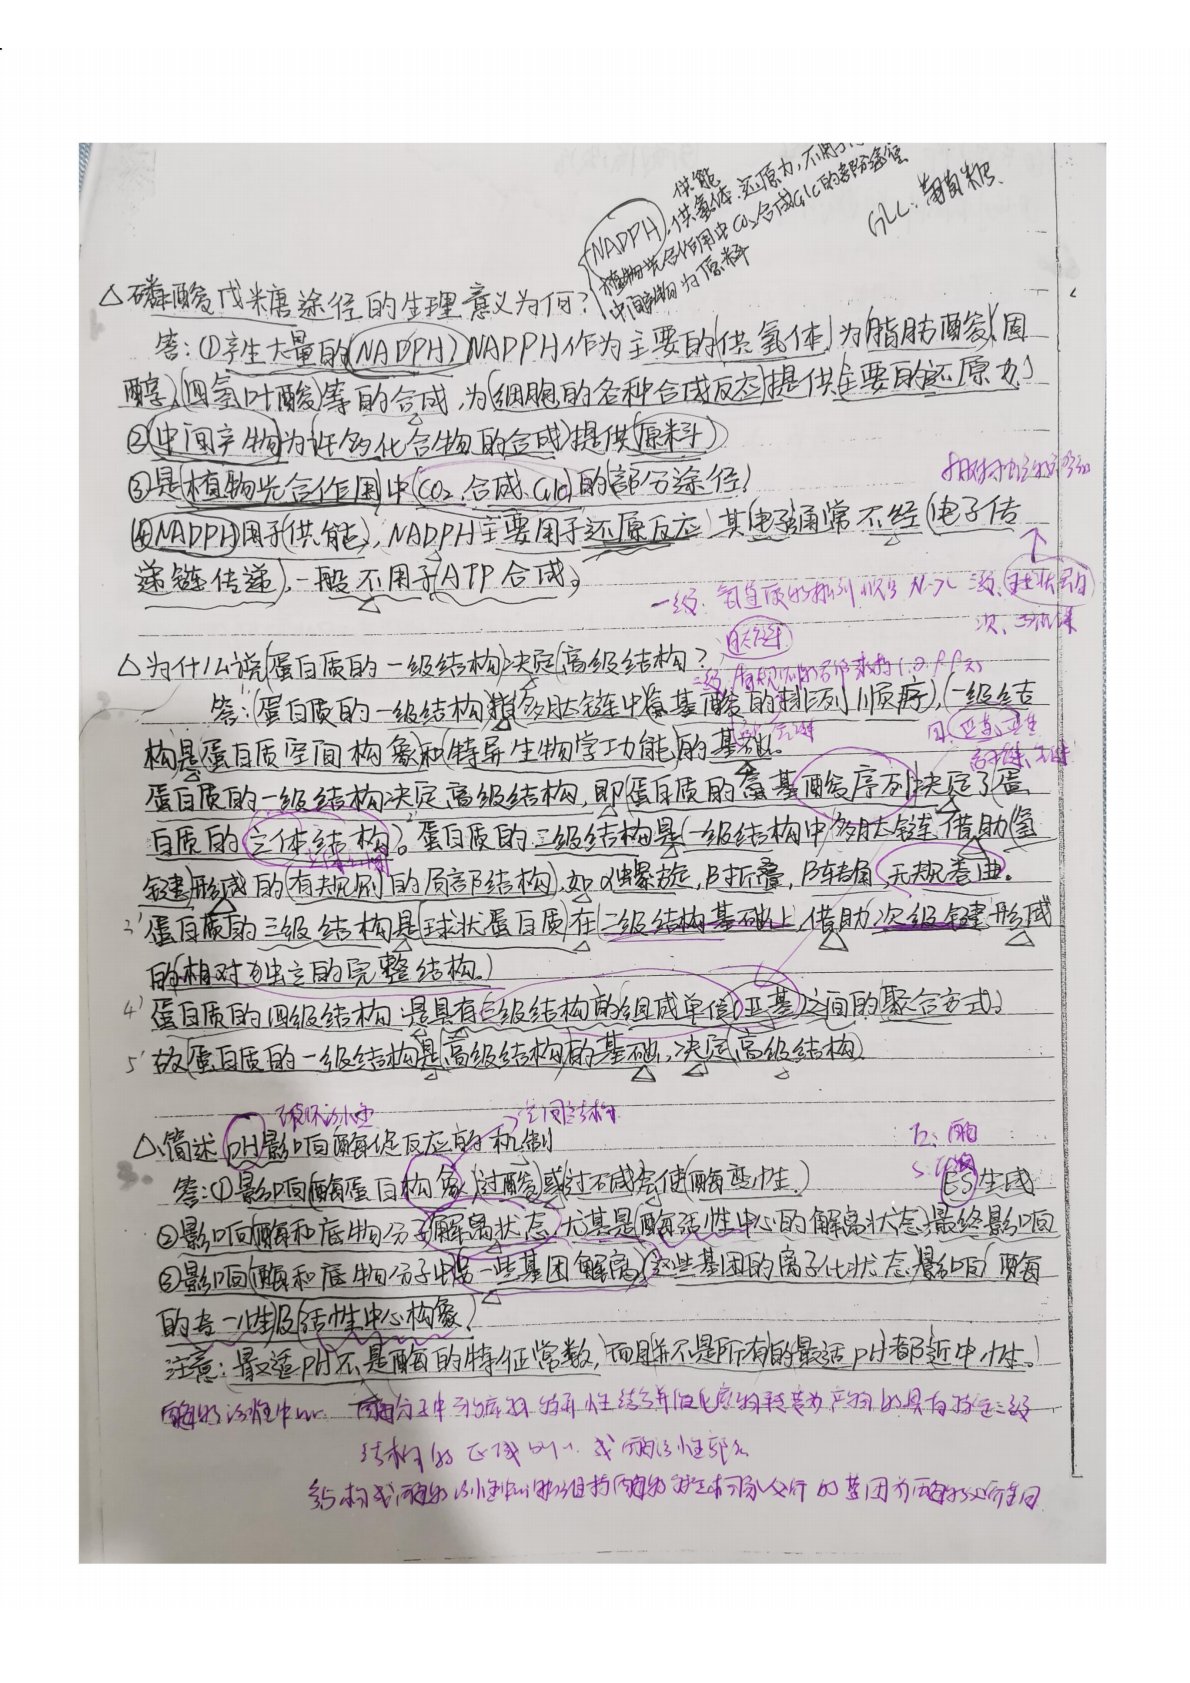 供能
NADPH 供氢体、还原力,不用于
植物光合作用中CO₂合成Glc的部分途径
中间产物为原料
GLC:葡萄糖
△磷酸戊糖途径的生理意义为何?
答:①产生大量的(NADPH)NADPH作为主要的(供氢体)为(脂肪酸)(固
醇)、(四氢叶酸)等的合成,为(细胞的各种合成反应)提供主要的还原力
②(中间产物)为(许多化合物的合成)提供(原料)
③是(植物光合作用)中(CO₂合成Glc)的(部分途径)
④(NADPH)用于(供能),NADPH主要用于还原反应,其电子通常不经(电子传
递链传递),一般不用于ATP合成。
一级:氨基酸的排列顺序 N→C 三级:球状蛋白
次级键
肽键
△为什么说(蛋白质的一级结构)决定(高级结构)?
答:(蛋白质的一级结构)指(多肽链中氨基酸的排列顺序),(一级结
构是蛋白质空间构象)和(特异生物学功能)的基础。
蛋白质的一级结构决定高级结构,即(蛋白质的氨基酸序列)决定了(蛋
白质的立体结构)。蛋白质的三级结构是(一级结构中)多肽链借助(氢
键)形成的(有规则的局部结构),如α螺旋,β折叠,β转角,无规卷曲。
3'蛋白质的三级结构是(球状蛋白质)在(二级结构基础上)借助次级键形成
的(相对独立的完整结构。)
4'蛋白质的四级结构是具有三级结构的组成单位(亚基)之间的聚合方式。
5'故(蛋白质的一级结构)是(高级结构)的基础,决定(高级结构)
破坏活性 空间结构
△简述pH影响酶促反应的机制
E:酶
S:底物
答:①影响(酶蛋白构象)过酸)或过碱会使(酶变性。) ES生成
②影响(酶和底物分子解离状态)尤其是(酶活性中心的解离状态)最终影响
③影响(酶和底物分子中另一些基团解离)(这些基团的离子化状态)影响(酶
的专一性)及(活性中心构象)
注意:最适pH不是酶的特征常数,而且并不是所有的最适pH都近中性。
酶的活性中心:酶分子中与底物特异性结合并催化底物转变为产物的具有特定三级
结构的区域 或酶活性部位